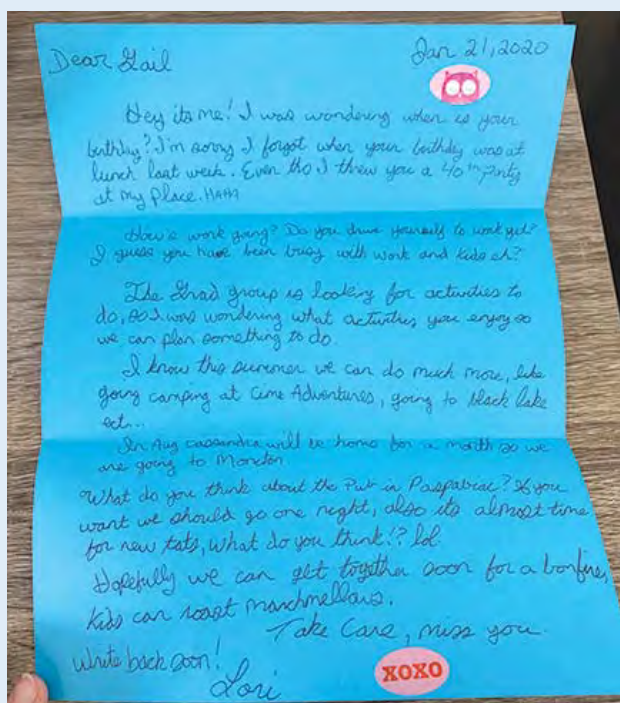 Dear Gail
Jan 21, 2020
Hey its me! I was wondering when is your
birthday? I'm sorry I forgot when your birthday was at
lunch last week. Even tho I threw you a 40th party
at my place. HAHA
How's work going? Do you drive yourself to work yet?
I guess you have been busy with work and kids eh?
The Grad group is looking for activities to
do, so I was wondering what activities you enjoy so
we can plan something to do.
I know this summer we can do much more, like
going camping at Cime Adventures, going to black lake
ect...
In Aug Cassandra will be home for a month so we
are going to Moncton
What do you think about the Pub in Paspabiac? If you
want we should go one night, also its almost time
for new tats, what do you think!? lol
Hopefully we can get together soon for a bonfire,
kids can roast marchmellows.
Take Care, miss you.
Write back soon!
Lori
XOXO